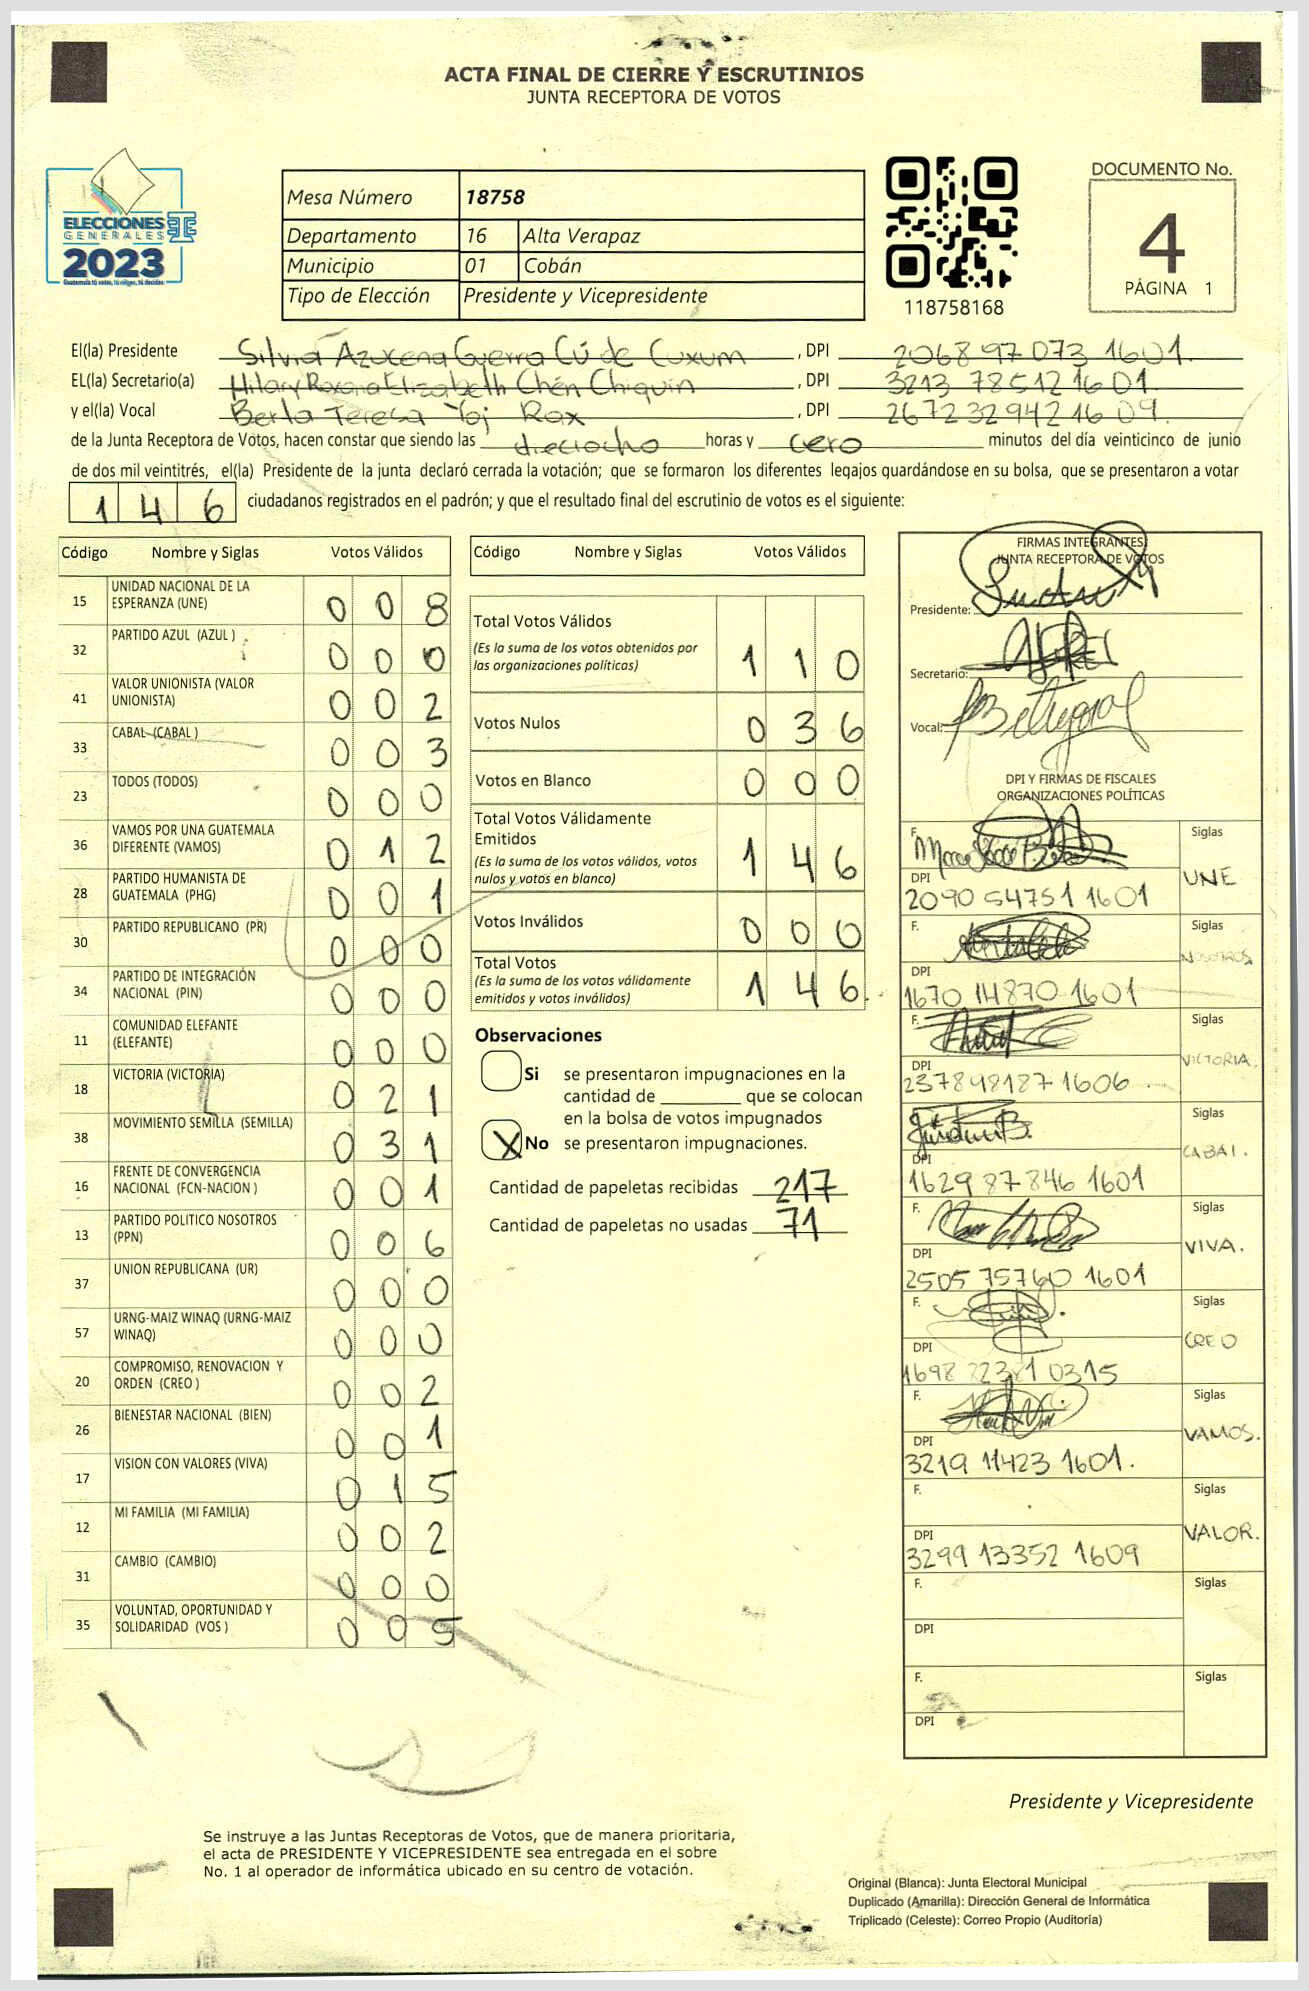 ACTA FINAL DE CIERRE Y ESCRUTINIOS
JUNTA RECEPTORA DE VOTOS
ELECCIONES
GENERALES
2023
Guatemala tú votas, tú eliges, tú decides
Mesa Número 18758
Departamento 16 Alta Verapaz
Municipio 01 Cobán
Tipo de Elección Presidente y Vicepresidente
118758168
DOCUMENTO No.
4
PÁGINA 1
El(la) Presidente Silvia Azucena Guerra Cú de Cuxum, DPI 2068 97 073 1601.
EL(la) Secretario(a) Hilary Roxana Elizabeth Chén Chiquín, DPI 3213 78512 1601.
y el(la) Vocal Berta Teresa Yoj Rax, DPI 2672 32942 1609.
de la Junta Receptora de Votos, hacen constar que siendo las dieciocho horas y cero minutos del día veinticinco de junio
de dos mil veintitrés, el(la) Presidente de la junta declaró cerrada la votación; que se formaron los diferentes legajos guardándose en su bolsa, que se presentaron a votar
146 ciudadanos registrados en el padrón; y que el resultado final del escrutinio de votos es el siguiente:
Código Nombre y Siglas Votos Válidos
15 UNIDAD NACIONAL DE LA ESPERANZA (UNE) 008
32 PARTIDO AZUL (AZUL ) 000
41 VALOR UNIONISTA (VALOR UNIONISTA) 002
33 CABAL (CABAL ) 003
23 TODOS (TODOS) 000
36 VAMOS POR UNA GUATEMALA DIFERENTE (VAMOS) 012
28 PARTIDO HUMANISTA DE GUATEMALA (PHG) 001
30 PARTIDO REPUBLICANO (PR) 000
34 PARTIDO DE INTEGRACIÓN NACIONAL (PIN) 000
11 COMUNIDAD ELEFANTE (ELEFANTE) 000
18 VICTORIA (VICTORIA) 021
38 MOVIMIENTO SEMILLA (SEMILLA) 031
16 FRENTE DE CONVERGENCIA NACIONAL (FCN-NACION ) 001
13 PARTIDO POLITICO NOSOTROS (PPN) 006
37 UNION REPUBLICANA (UR) 000
57 URNG-MAIZ WINAQ (URNG-MAIZ WINAQ) 000
20 COMPROMISO, RENOVACION Y ORDEN (CREO ) 002
26 BIENESTAR NACIONAL (BIEN) 001
17 VISION CON VALORES (VIVA) 015
12 MI FAMILIA (MI FAMILIA) 002
31 CAMBIO (CAMBIO) 000
35 VOLUNTAD, OPORTUNIDAD Y SOLIDARIDAD (VOS ) 005
Código Nombre y Siglas Votos Válidos
Total Votos Válidos 110
(Es la suma de los votos obtenidos por
las organizaciones políticas)
Votos Nulos 036
Votos en Blanco 000
Total Votos Válidamente
Emitidos 146
(Es la suma de los votos válidos, votos
nulos y votos en blanco)
Votos Inválidos 000
Total Votos 146
(Es la suma de los votos válidamente
emitidos y votos inválidos)
Observaciones
Si se presentaron impugnaciones en la
cantidad de ________ que se colocan
en la bolsa de votos impugnados
X No se presentaron impugnaciones.
Cantidad de papeletas recibidas 217
Cantidad de papeletas no usadas 71
FIRMAS INTEGRANTES
JUNTA RECEPTORA DE VOTOS
Presidente:
Secretario:
Vocal:
DPI Y FIRMAS DE FISCALES
ORGANIZACIONES POLÍTICAS
F. Siglas UNE
DPI 2090 54751 1601
F. Siglas NOSOTROS
DPI 1670 14870 1601
F. Siglas VICTORIA.
DPI 2378 98187 1606
F. Siglas CABAL.
DPI 1629 87846 1601
F. Siglas VIVA.
DPI 2505 75760 1601
F. Siglas CREO
DPI 1698 22381 0315
F. Siglas VAMOS.
DPI 3219 11423 1601.
F. Siglas VALOR.
DPI 3299 13352 1609
F. Siglas
DPI
F. Siglas
DPI
Presidente y Vicepresidente
Se instruye a las Juntas Receptoras de Votos, que de manera prioritaria,
el acta de PRESIDENTE Y VICEPRESIDENTE sea entregada en el sobre
No. 1 al operador de informática ubicado en su centro de votación.
Original (Blanca): Junta Electoral Municipal
Duplicado (Amarilla): Dirección General de Informática
Triplicado (Celeste): Correo Propio (Auditoría)